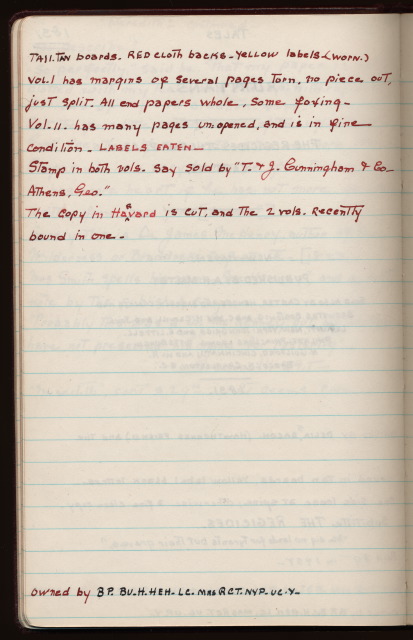 Tall. Tan boards. Red cloth backs. Yellow labels (worn.)
Vol. I has margins of several pages torn, no piece out,
just split. All end papers whole, some foxing -
Vol. II. has many pages unopened, and is in fine
condition. LABELS EATEN -
Stamp in both vols. say sold by "T. & J. Cunningham & Co -
Athens, Geo."
The copy in Havard is cut, and the 2 vols. recently
bound in one -
owned by B.P. BU. H. HEH. LC. MRS R.C.T. NYP. UC. Y -